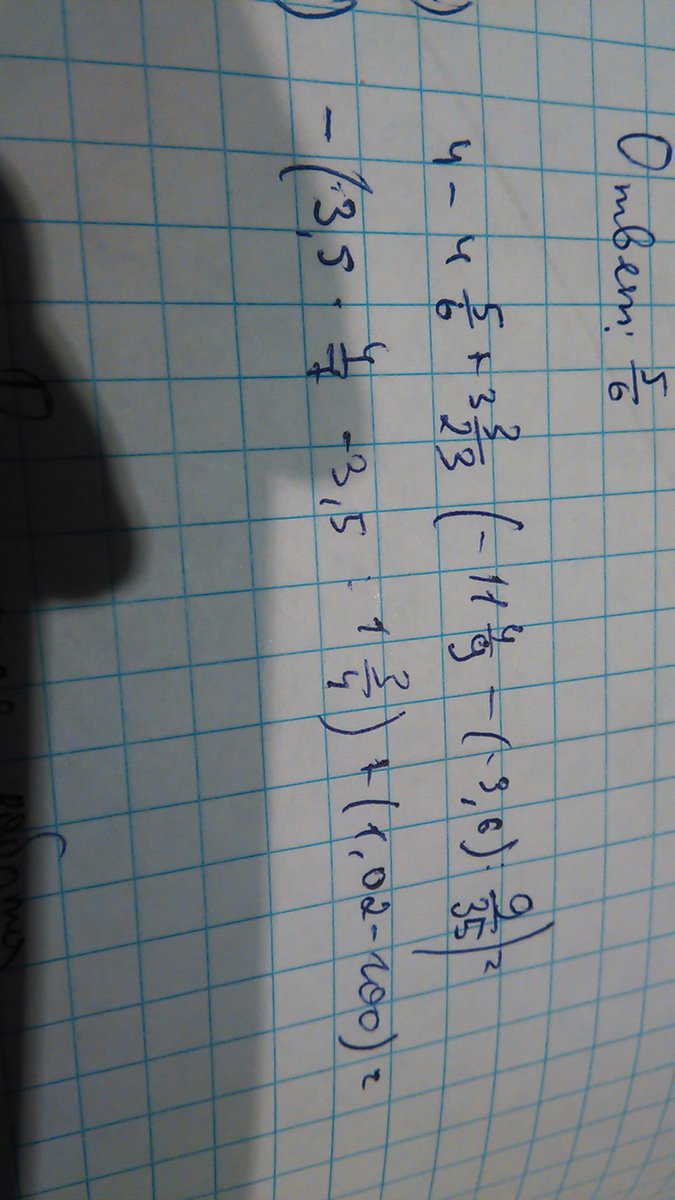 Ответ: 5/6
4 - 4 5/6 + 3 3/23 (-11 4/9 - (-3,6) · 9/35) =
- (-3,5 · 4/7 - 3,5 : 1 3/4) + (1,02 - 100) =